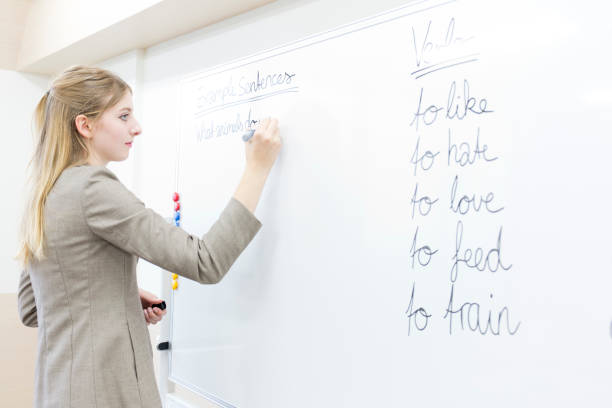 Example Sentences
What animals do
Verbs
to like
to hate
to love
to feed
to train